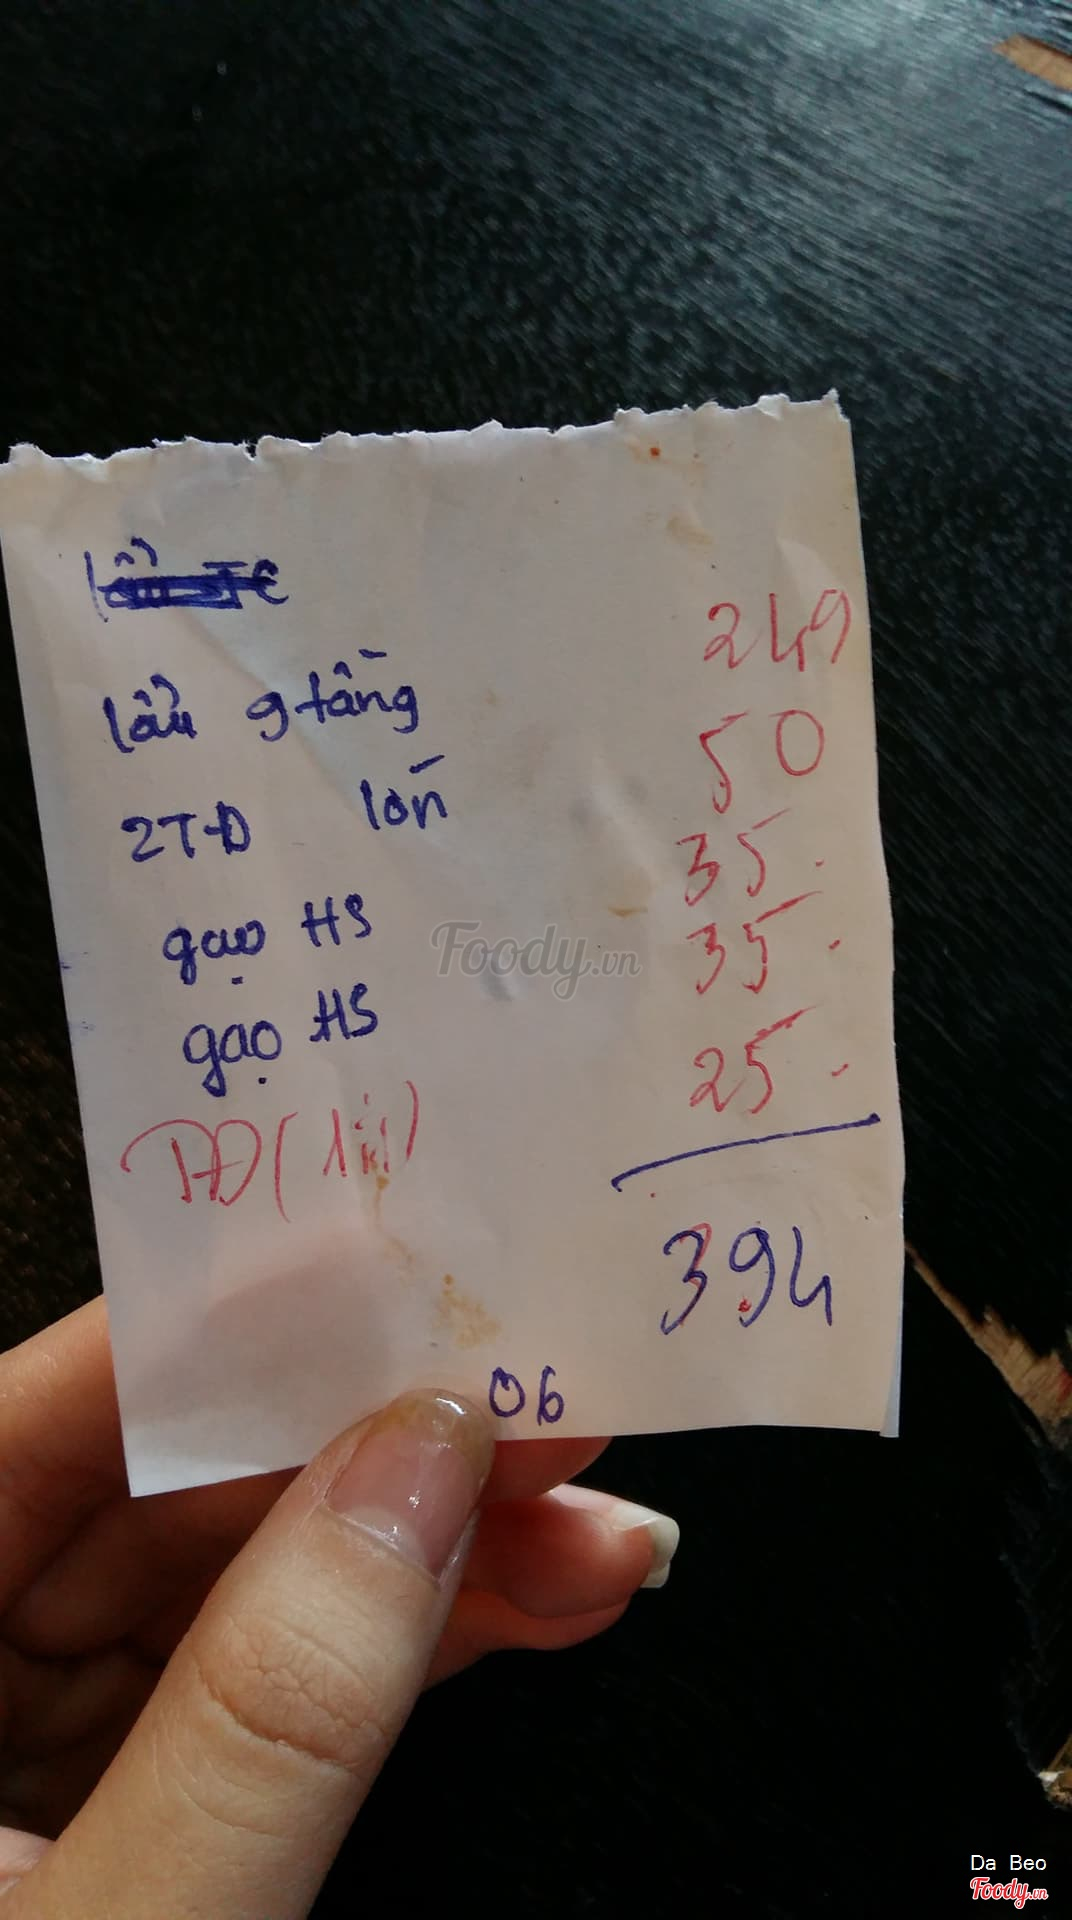 lẩu 9 tầng 249
2TĐ lớn 50
gạo HS 35.
gạo HS 35.
TĐ ( 25.
394
06
Foody.vn
Da Beo
Foody.vn